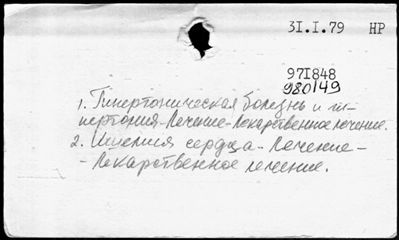 31.I.79 НР
971848
980149
1. Гипертоническая болезнь и ги-
пертония-Лечение-Лекарственное лечение.
2. Ишемия сердца-Лечение-
-Лекарственное лечение.